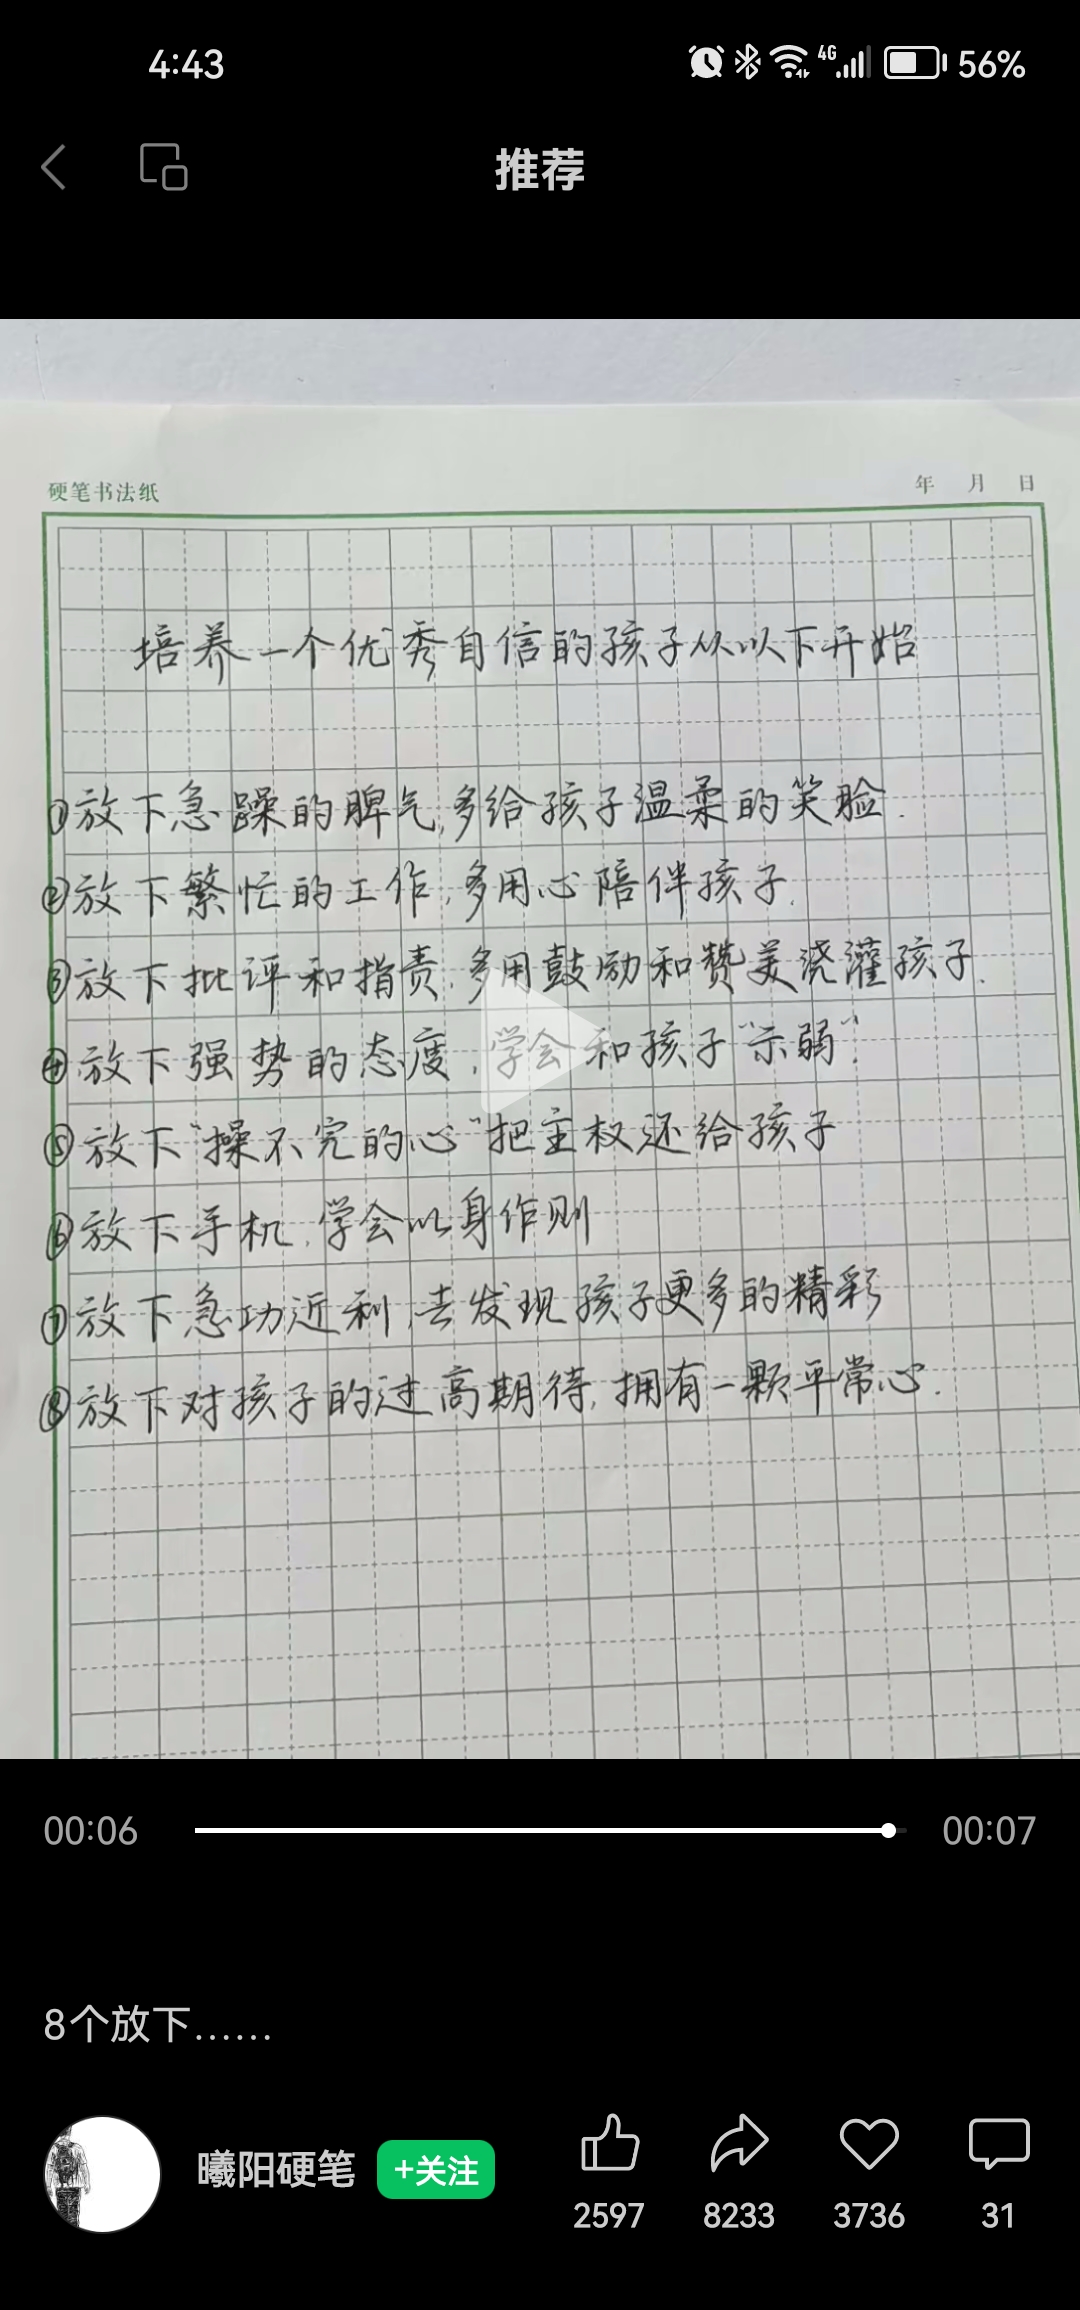 4:43
4G
56%
推荐
硬笔书法纸
年 月 日
培养一个优秀自信的孩子从以下开始
①放下急躁的脾气,多给孩子温柔的笑脸.
②放下繁忙的工作,多用心陪伴孩子.
③放下批评和指责,多用鼓励和赞美浇灌孩子.
④放下强势的态度,学会和孩子"示弱".
⑤放下"操不完的心"把主权还给孩子
⑥放下手机,学会以身作则
⑦放下急功近利,去发现孩子更多的精彩
⑧放下对孩子的过高期待,拥有一颗平常心.
00:06
00:07
8个放下......
曦阳硬笔
+关注
2597
8233
3736
31